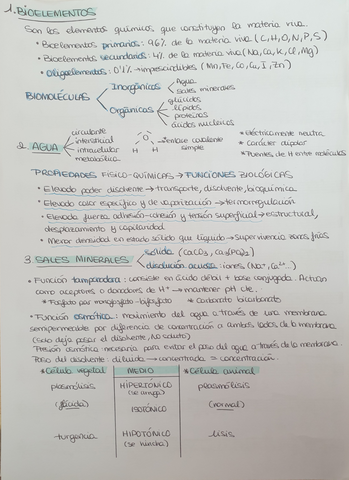 1. BIOELEMENTOS
Son los elementos químicos que constituyen la materia viva.
* Bioelementos primarios: 96% de la materia viva (C, H, O, N, P, S)
* Bioelementos secundarios: 4% de la materia viva (Na, Ca, K, Cl, Mg)
* Oligoelementos: 0'1% → imprescindibles (Mn, Fe, Co, Cu, I, Zn)
BIOMOLÉCULAS
Inorgánicas
Agua
sales minerales
Orgánicas
glúcidos
lípidos
proteínas
ácidos nucleicos
2. AGUA
circulante
intersticial
intracelular
metabólica
O
H H
enlace covalente simple
* Eléctricamente neutra
* Carácter dipolar
* Puentes de H entre moléculas
PROPIEDADES FÍSICO-QUÍMICAS → FUNCIONES BIOLÓGICAS
- Elevado poder disolvente → transporte, disolvente, bioquímica
- Elevado calor específico y de vaporización → termorregulación
- Elevada fuerza adhesión-cohesión y tensión superficial → estructural,
desplazamiento y capilaridad
- Menor densidad en estado sólido que líquido → Supervivencia zonas frías
3. SALES MINERALES
sólida (CaCO3, Ca3(PO4)2)
disolución acuosa: iones (Na+, Ca2+...)
• Función tamponadora: consiste en ácido débil + base conjugada. Actúan
como aceptores o donadores de H+ → mantener pH cte.
* Fosfato por monofosfato-bifosfato * Carbonato bicarbonato
• Función osmótica: movimiento del agua a través de una membrana
semipermeable por diferencia de concentración a ambos lados de la membrana
(solo deja pasar el disolvente, NO soluto)
Presión osmótica necesaria para evitar el paso del agua a través de la membrana.
Paso del disolvente: diluida → concentrada = concentración.
* Célula vegetal MEDIO * Célula animal
plasmólisis HIPERTÓNICO plasmólisis
(se arruga)
(flácida) ISOTÓNICO (normal)
turgencia HIPOTÓNICO lisis
(se hincha)